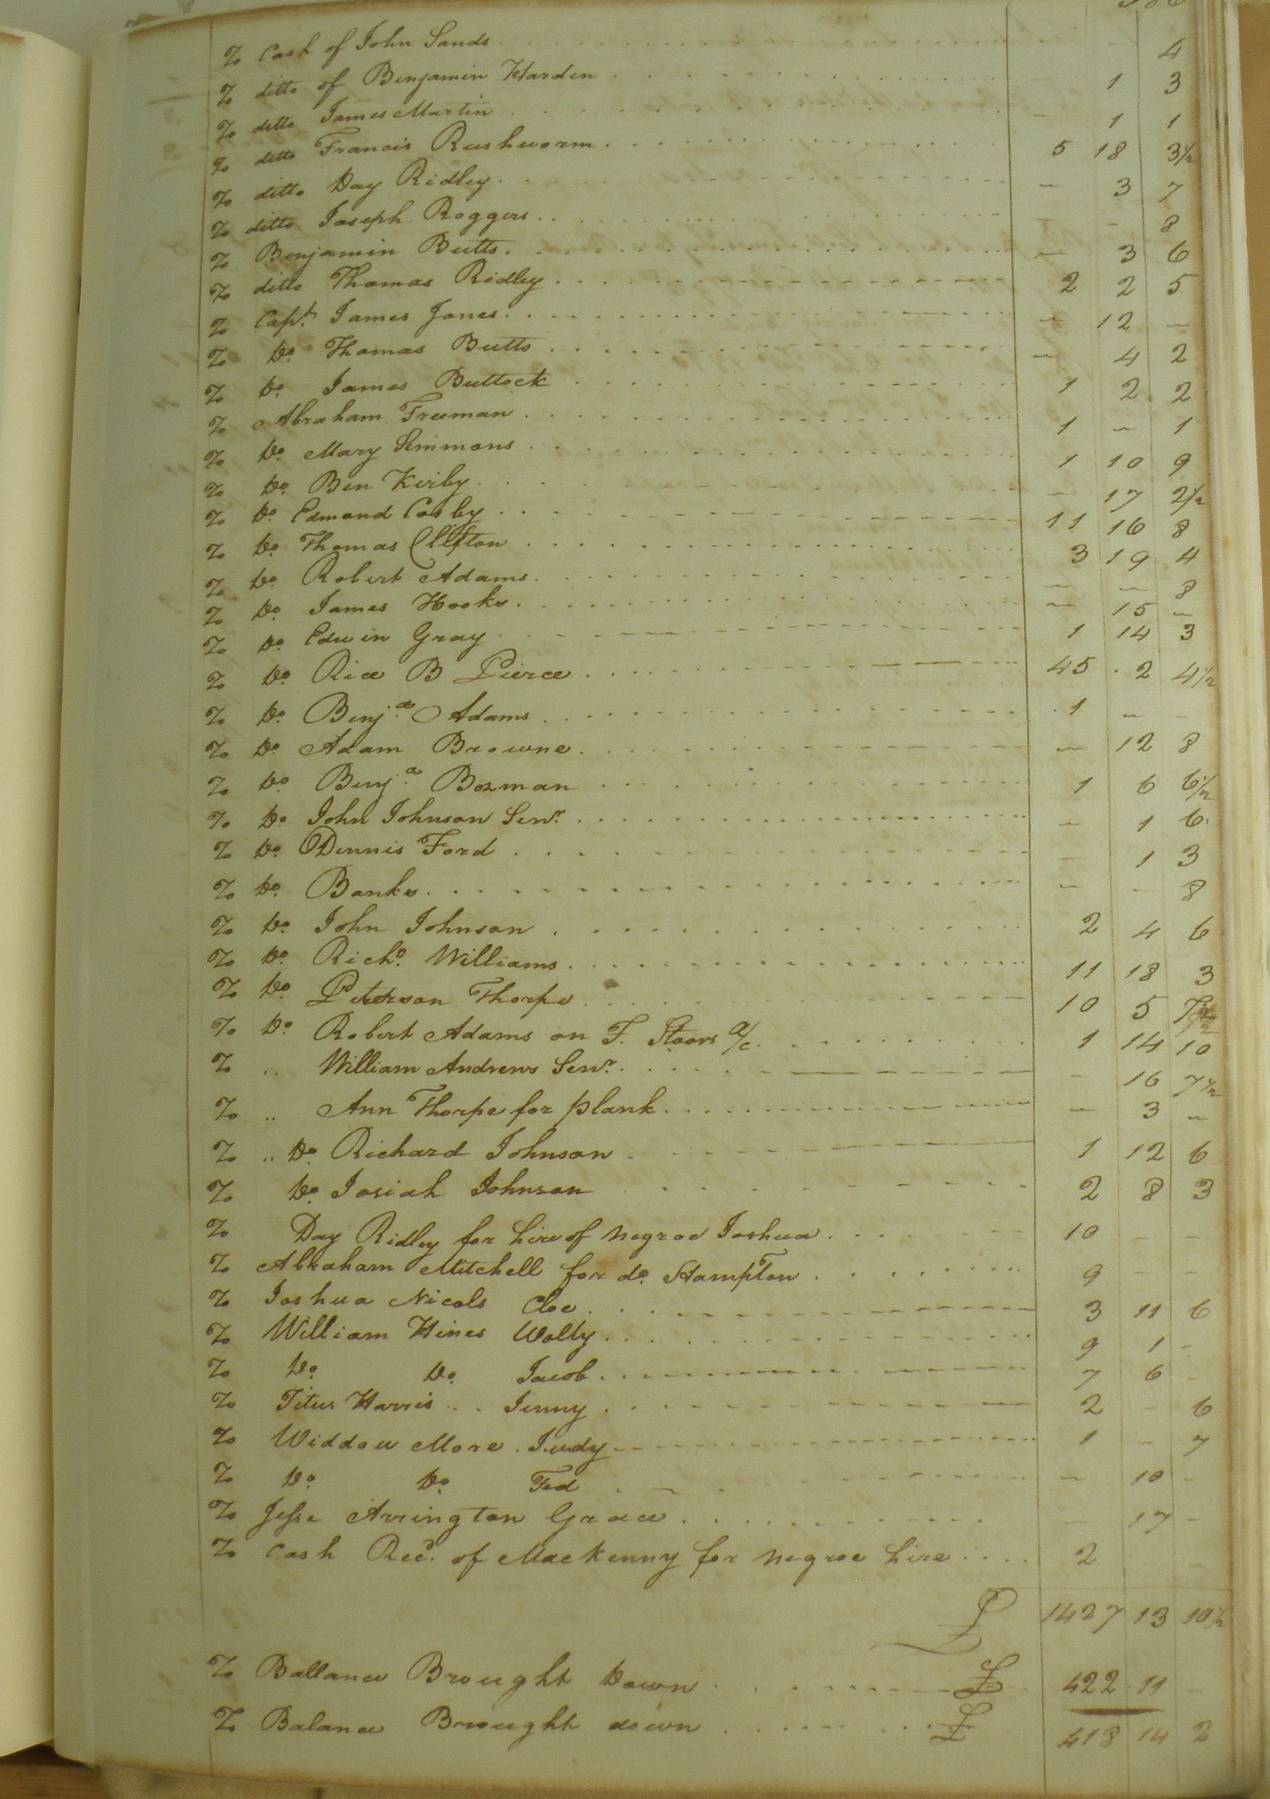 To Cash of John Sands 4
To ditto of Benjamin Harden 1 3
To ditto James Martin 1 1
To ditto Francis Rushworm 5 18 3½
To ditto Day Ridley - 3 7
To ditto Joseph Roggers - - 8
To Benjamin Butts - 3 6
To ditto Thomas Ridley 2 2 5
To Capt. James Jones - 12 -
To Do. Thomas Butts - 4 2
To Do. James Buttock 1 2 2
To Abraham Freeman 1 - 1
To Do. Mary Simmons 1 10 9
To Do. Ben Kirby - 17 2½
To Do. Edmond Cosby 11 16 8
To Do. Thomas Clifton 3 19 4
To Do. Robert Adams - - 8
To Do. James Hooks - 15 -
To Do. Edwin Gray 1 14 3
To Do. Rice B Pierce 45 2 4½
To Do. Benja. Adams 1 -
To Do. Adam Browne - 12 8
To Do. Benja. Bozman 1 6 6½
To Do. John Johnson Senr. - 1 6
To Do. Dennis Ford - 1 3
To Do. Banks - - 8
To Do. John Johnson 2 4 6
To Do. Richd. Williams 11 18 3
To Do. Peterson Thorpe 10 5
To Do. Robert Adams on F. a/c 1 14 10
To .. William Andrews Senr. - 16 7½
To .. Ann Thorpe for plank - 3 -
To .. Do. Richard Johnson 1 12 6
To Do. Josiah Johnson 2 8 3
To Day Ridley for hire of negroe Joshua 10 - -
To Abraham Mitchell for do. Hampton 9 - -
To Joshua Nicols Cloe 3 11 6
To William Hines Wolly 9 1 -
To Do. Do. Jacob 7 6 -
To Titus Harris Jenny 2 - 6
To Widdow More Judy 1 - 7
To Do. Do. Ted - 10 -
To Jesse Arrington Grace - 17 -
To Cash Recd. of MacKenny for negroe hire 2 -
£ 1427 13 10½
To Ballance Brought Down £ 422 11 -
To Balance Brought down £ 418 14 2